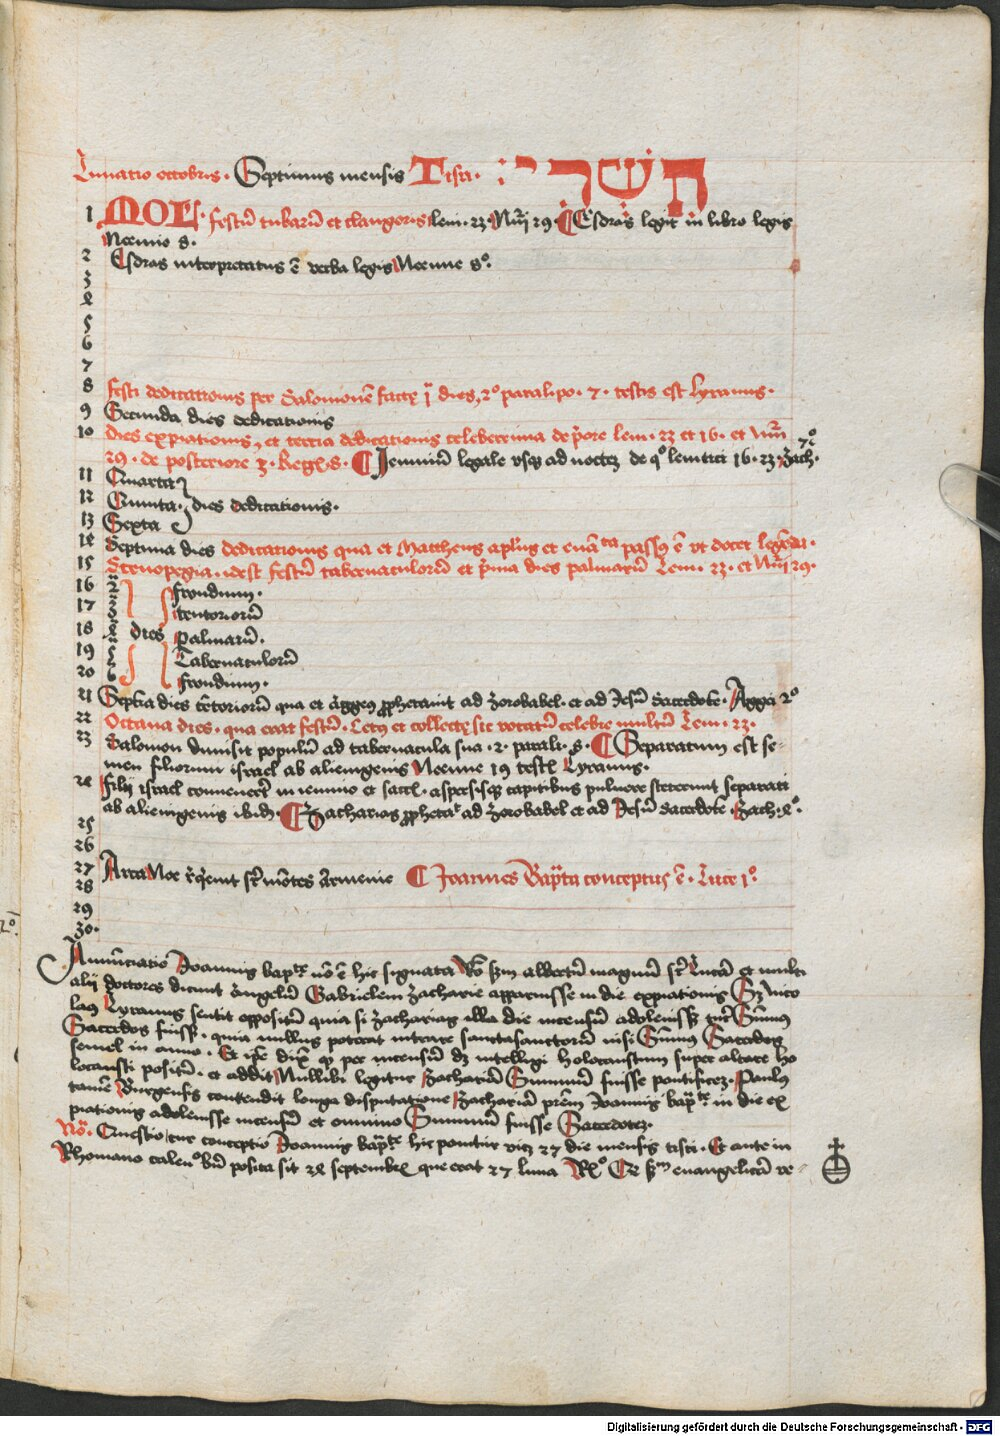 Lunatio octobris · Septimus mensis Tisri · תשרי
1 MOL · festū tubarū et clangoris leui · 23 · Nūi 29 · Esdras legit in libro legis
Neemie 8 ·
2 Esdras interpretatus ē verba legis Neemie 8º ·
3
4
5
6
7
8 festi dedicationis per Salomonē factę dies, 2º paralipo · 7 · testis est Lyranus ·
9 Secunda dies dedicationis
10 Dies expiationis, et tertia dedicationis celeberrima de pōre leui · 23 et 16 · et Nūi
29 · de posteriore 3 · Reg · 8 · Ieiuniū legale vsq ad noctez de qº leuitici 16 · 23 · Zach · 7º
11 Quarta
12 Quinta · dies dedicationis ·
13 Sexta
14 Septima dies dedicationis qua et Mattheus apłus et euāta passꝰ ē vt docet legēda ·
15 Scenopegia · idest festū tabernaculorū et pīma dies palmarū Leui · 23 · et Nūi 29 ·
16 2 frondium ·
17 3 tentoriorū
18 4 dies Palmarū ·
19 5 Tabernaculorū
20 6 frondium ·
21 Septīa dies tētoriorū qua et Aggeꝰ prophetauit ad Zorobabel · et ad Iesū sacerdotē · Aggei 2º
22 Octaua dies · qua erat festū · Cetꝰ et collectę sic vocatū celebre multū Leui · 23 ·
23 Salomon dimisit populū ad tabernacula sua · 2 · parali · 8 · Separatum est se-
men filiorum israel ab alienigenis Neemie 19 testē Lyranus ·
24 filij israel conuenerūt in ieiunio et saccis · aspersisq capitibus puluere steterunt separati
ab alienigenis ibidē · Zacharias prophetat ad Zorobabel et ad Iesū sacerdotē · Zach · 4º ·
25
26
27 Arca Noe reqeuit sr mōtes Armenie Ioannes Bapīta conceptus ē · Luce 1º ·
28
29
30 ·
Annūciatio Ioannis baptę nō ē hic signata Vō scdm albertū magnū sr Lucā et multi
alij doctores dicunt Angelū Gabrielem Zacharie apparuisse in die expiationis Sz Nico
laus Lyranus sentit oppositū quia si Zacharias illa die incensū adoleuissz tūc Sūmus
Sacerdos fuissz · quia nullus poterat intrare sanctasanctorū nisi Sūmus Sacerdos
semel in anno · Et ipē dix qp per incensū dz intelligi holocaustum super altare ho
locausti positū · et addit Nullibi legitur Zachariā Summū fuisse pontificez · Paulus
tamē Burgensis contendit longa disputatione Zachariā prēm Ioannis baptę in die ex
piationis adoleuisse incensū et omnino Summū fuisse Sacerdotez ·
Nō · Questio cur conceptio Ioannis baptę hic ponitur viz 27 die mensis tisri · Et ante in
Rhomano calenº bn posita sit 24 septembris que erat 27 luna Rº Qz scdm euangelicā ve-